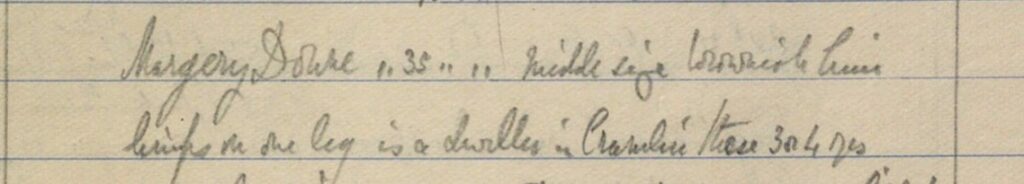 Margery Downe „ 35 „ „ middle size brownish hair
limps on one leg is a dweller in Crumlin these 3 or 4 yrs